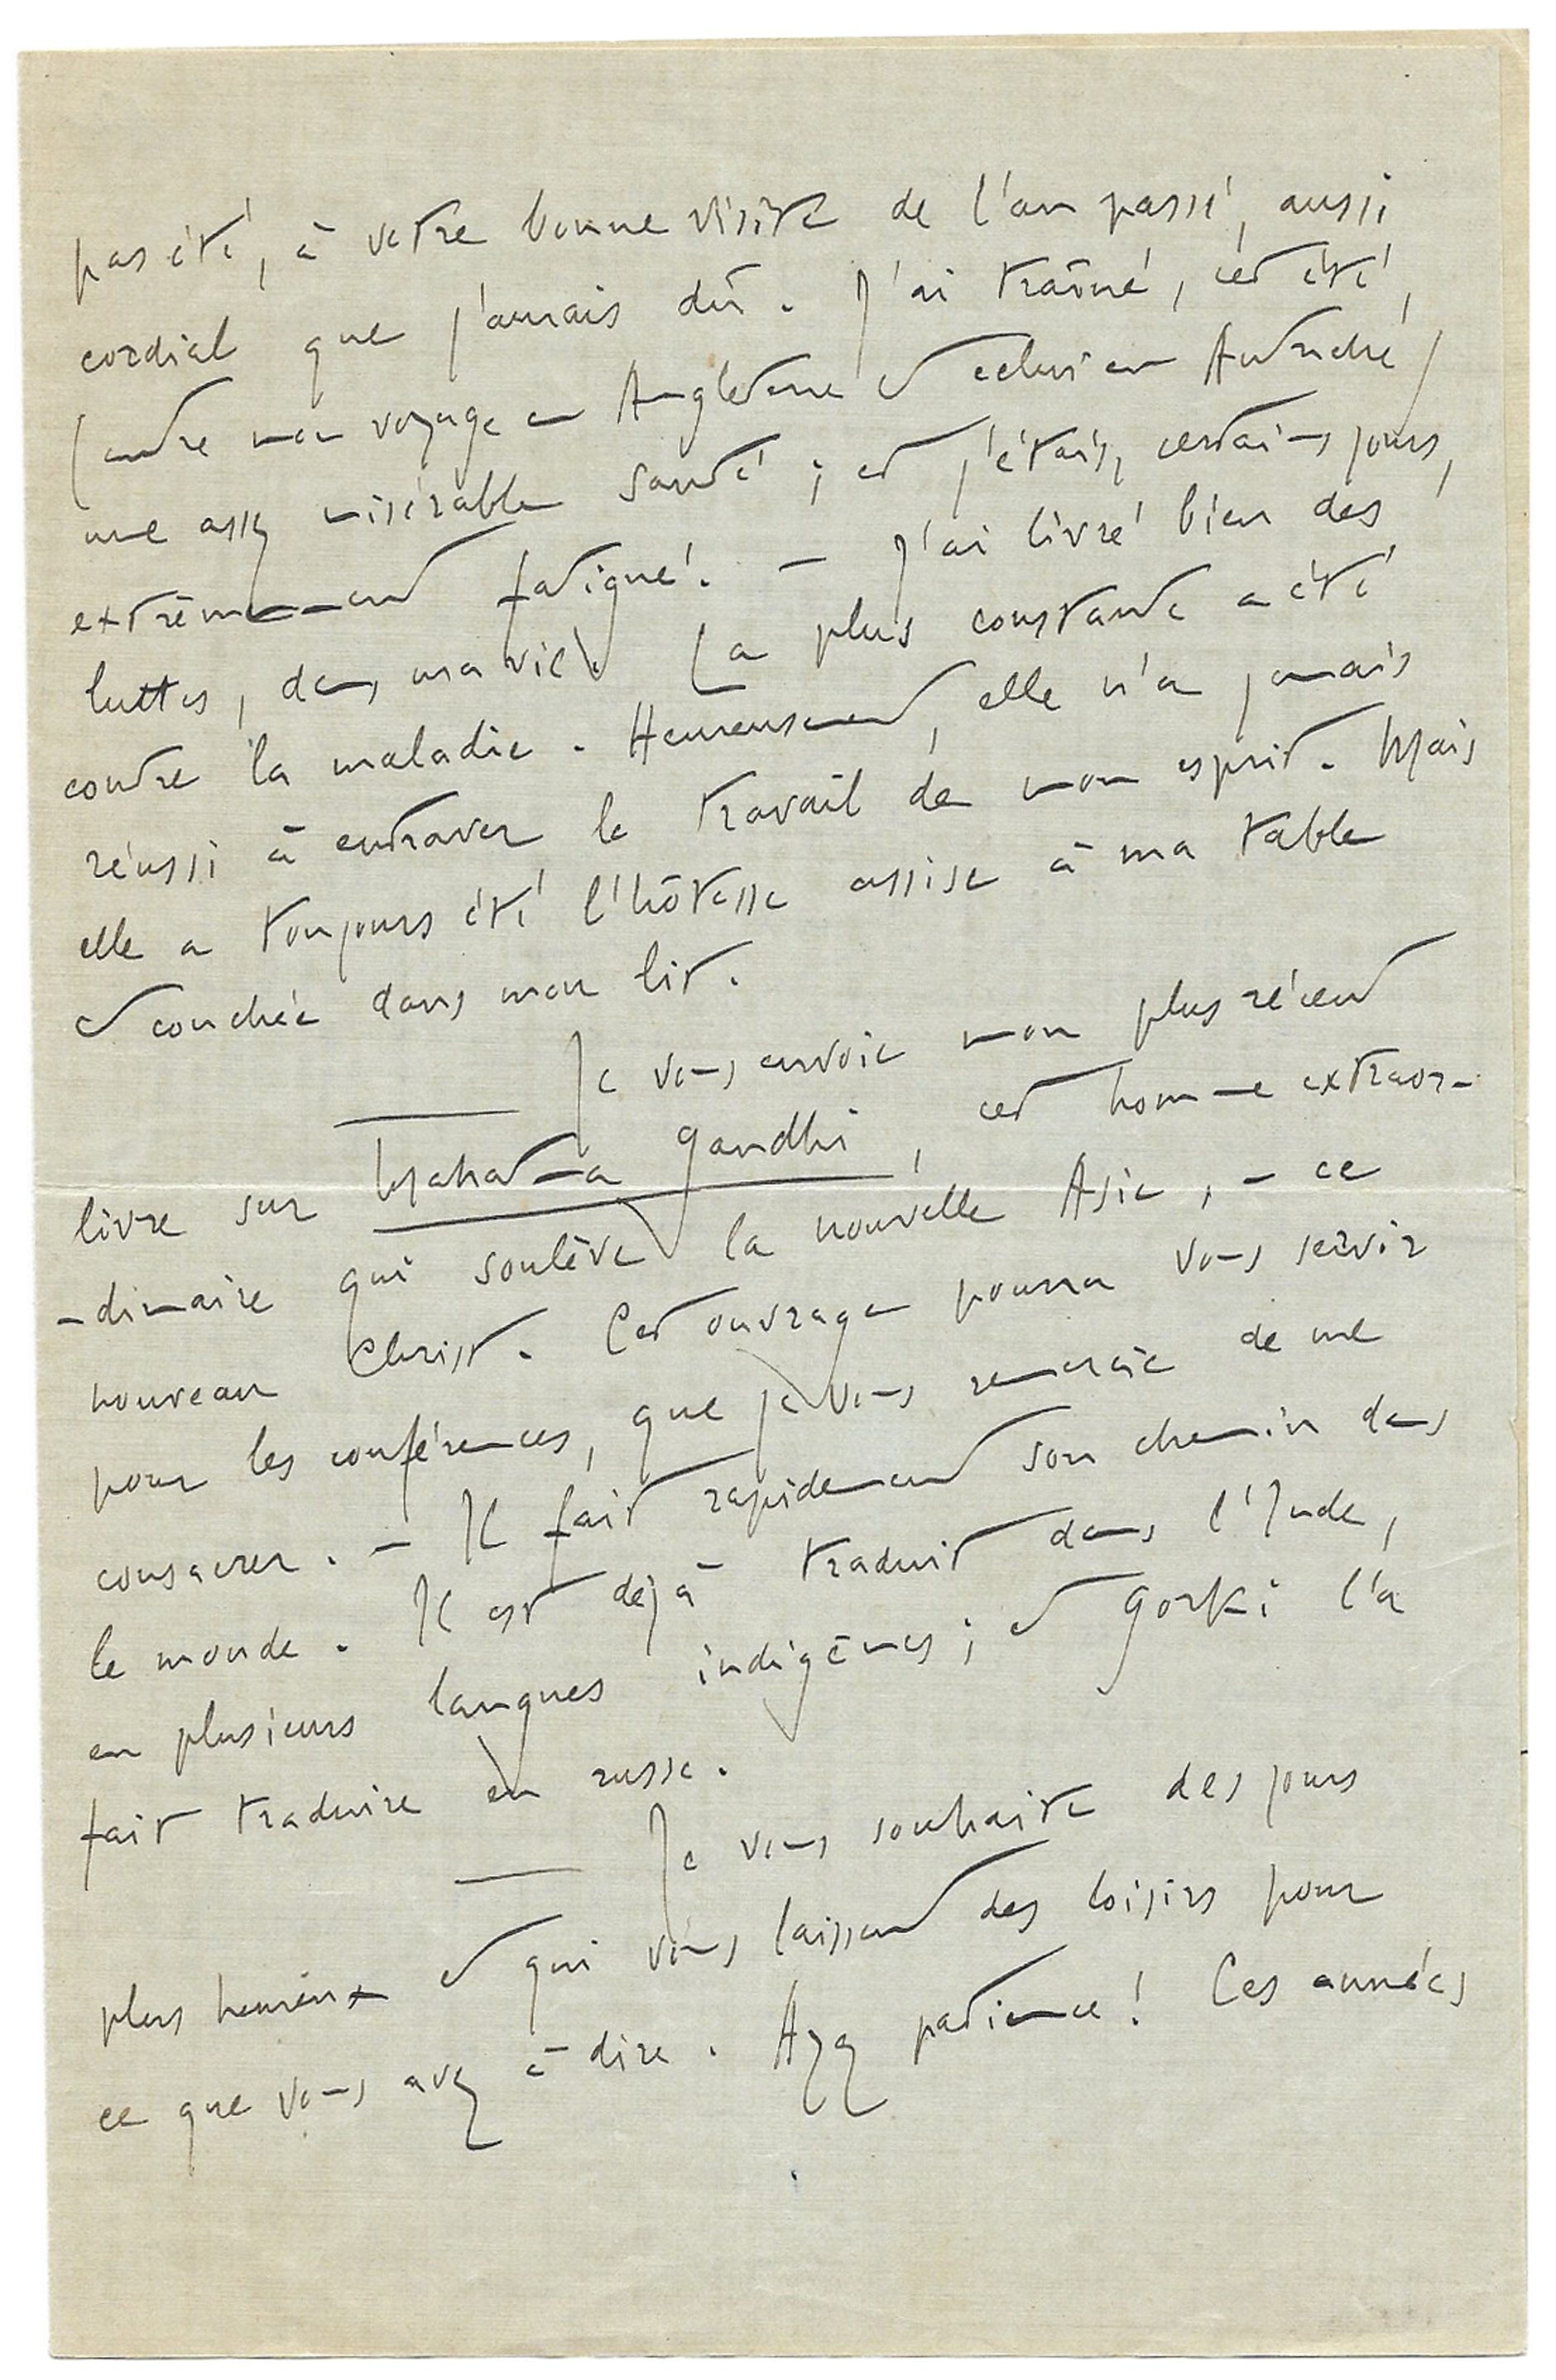 pas été, à votre bonne visite de l'an passé, aussi
cordial que j'aurais dû. J'ai traîné, cet été,
(entre mon voyage en Angleterre et celui en Autriche)
une assez misérable santé ; et j'étais, certains jours,
extrêmement fatigué. – J'ai livré bien des
luttes, dans ma vie. La plus constante a été
contre la maladie. Heureusement, elle n'a jamais
réussi à entraver le travail de mon esprit. Mais
elle a toujours été l'hôtesse assise à ma table
et couchée dans mon lit.
— Je vous envoie mon plus récent
livre sur Mahatma Gandhi, cet homme extraor-
-dinaire qui soulève la nouvelle Asie, – ce
nouveau Christ. Cet ouvrage pourra vous servir
pour les conférences, que je vous remercie de me
consacrer. – Il fait rapidement son chemin dans
le monde. Il est déjà traduit dans l'Inde,
en plusieurs langues indigènes ; et Gorki l'a
fait traduire en russe.
— Je vous souhaite des jours
plus heureux et qui vous laissent des loisirs pour
ce que vous avez à dire. Ayez patience ! Ces années